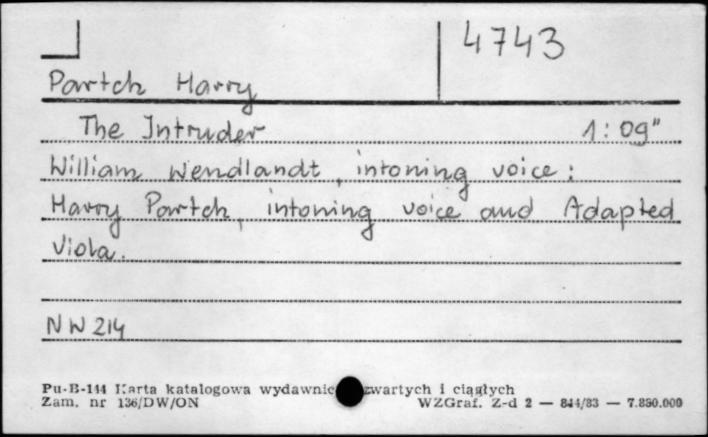 4743
Partch Harry
The Intruder 1:09"
William Wendlandt, intoning voice;
Harry Partch, intoning voice and Adapted
Viola.
NW 214
Pu-B-144 Karta katalogowa wydawnic zwartych i ciągłych
Zam. nr 136/DW/ON WZGraf. Z-d 2 — 844/83 — 7.850.000